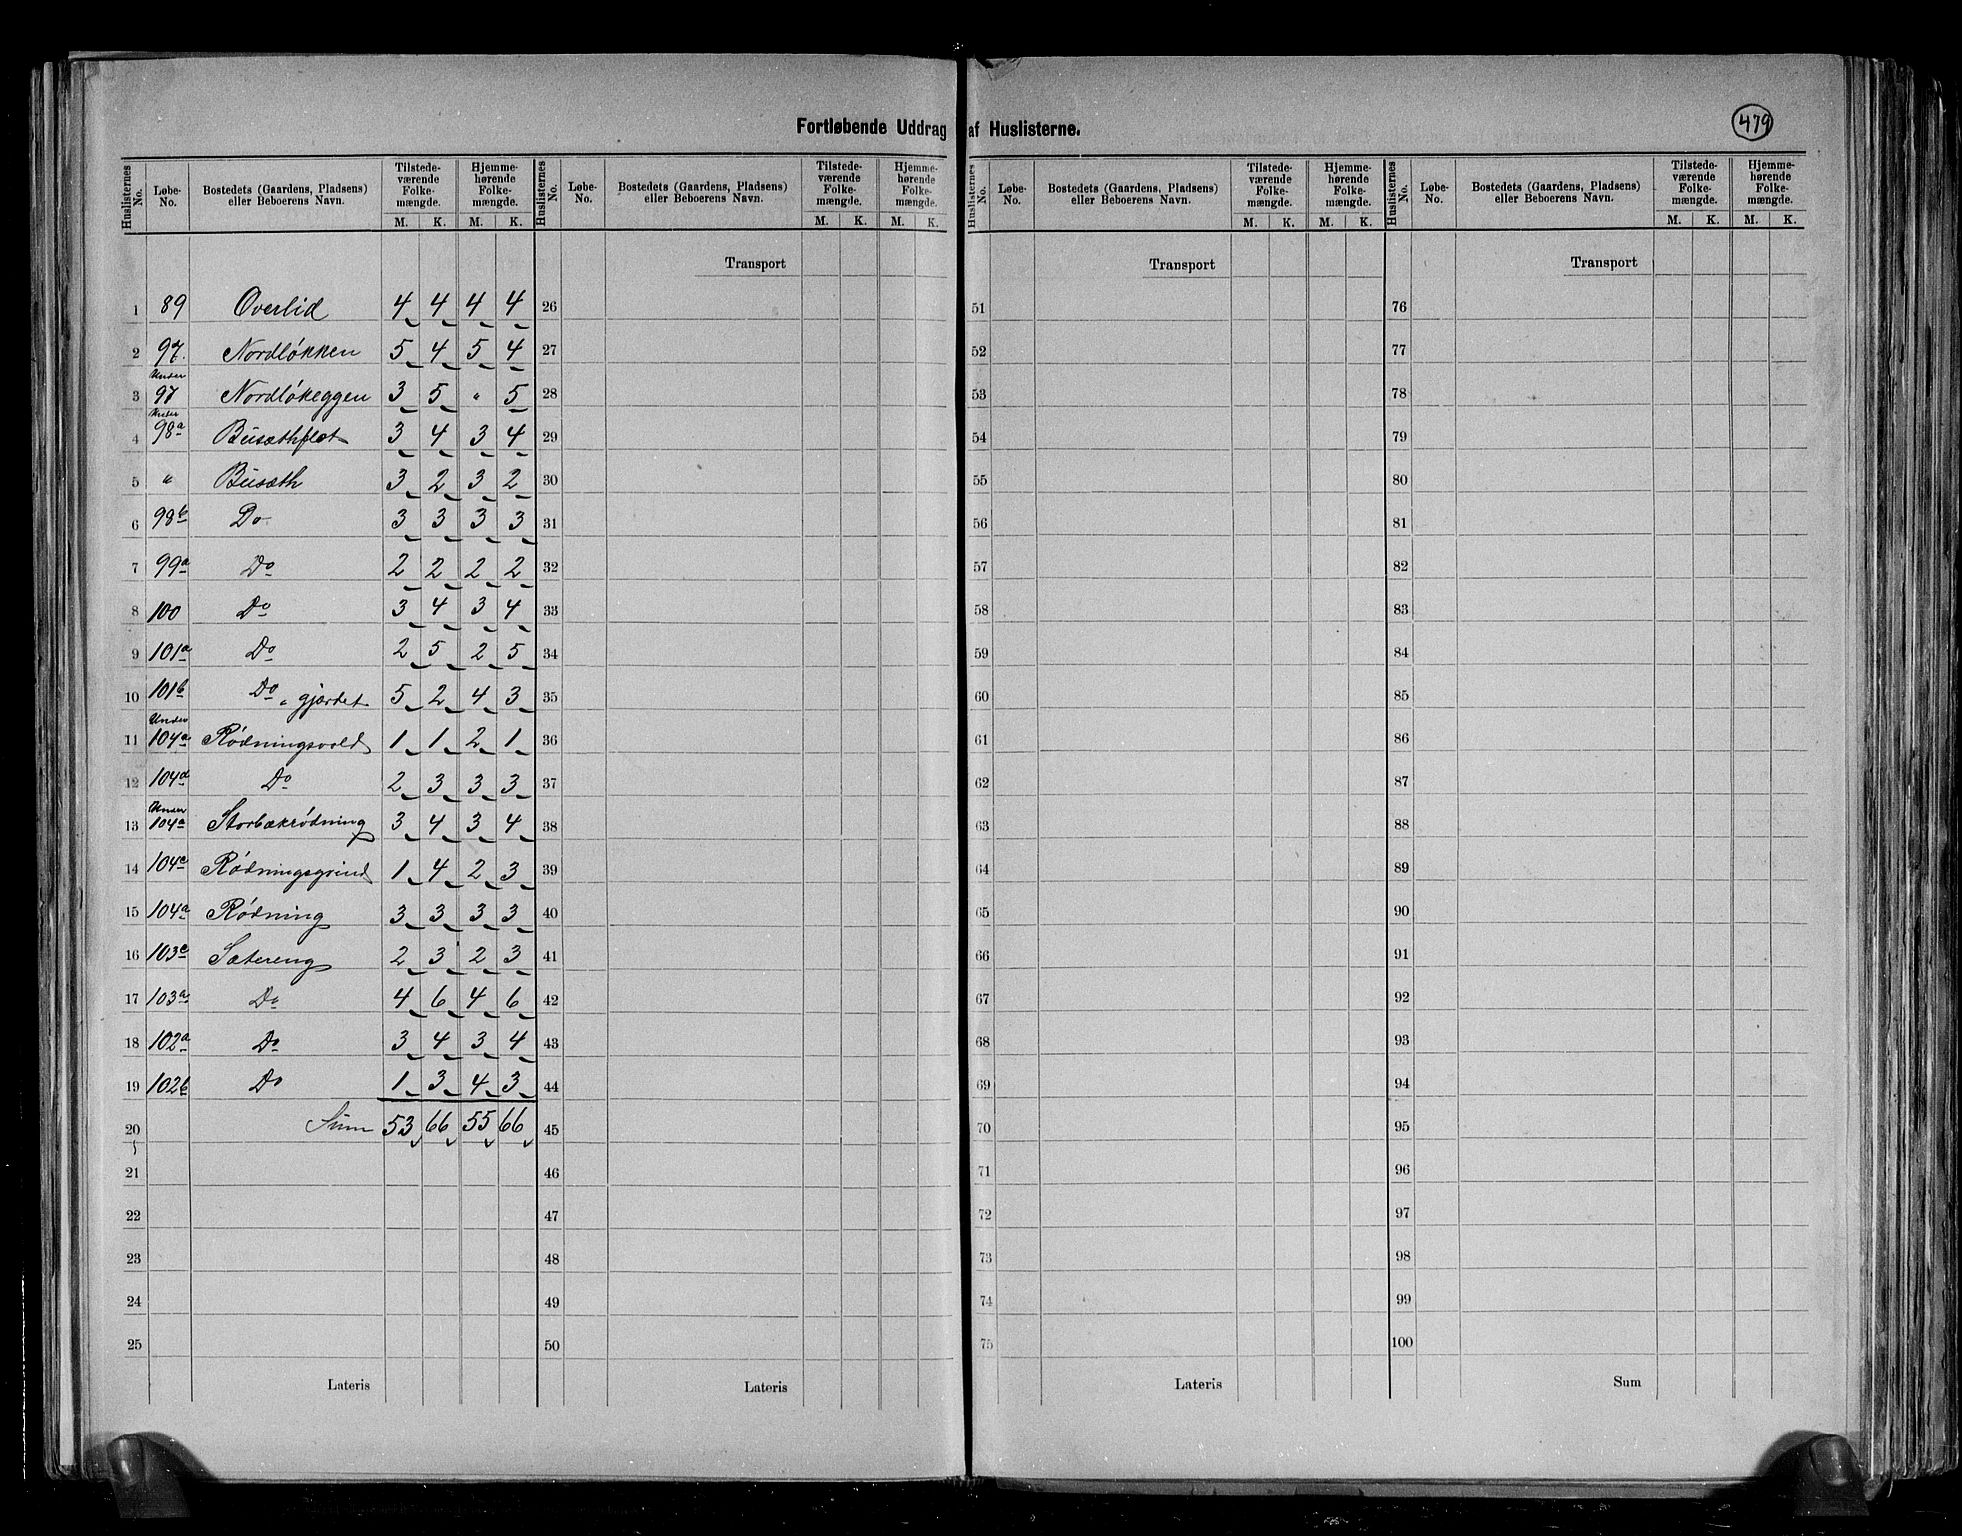 Fortløbende Uddrag af Huslisterne.
479
Huslisternes No. | Løbe-No. | Bostedets (Gaardens, Pladsens) eller Beboerens Navn. | Tilstedeværende Folkemængde. M. K. | Hjemmehørende Folkemængde. M. K.
Transport
1 89 Overlid 4 4 4 4
2 97. Nordløkken 5 4 5 4
3 Under 97 Nordløkeggen 3 5 " 5
4 Under 98a Busæthflot 3 4 3 4
5 " Busæth 3 2 3 2
6 98b Do 3 3 3 3
7 99a Do 2 2 2 2
8 100 Do 3 4 3 4
9 101a Do 2 5 2 5
10 101b Do " gjærdet 5 2 4 3
11 Under 104a Rødningsvold 1 1 2 1
12 104d Do 2 3 3 3
13 Under 104a Storbækrødning 3 4 3 4
14 104c Rødningsgrind 1 4 2 3
15 104a Rødning 3 3 3 3
16 103c Sætereng 2 3 2 3
17 103a Do 4 6 4 6
18 102a Do 3 4 3 4
19 102b Do 1 3 4 3
20 Sum 53 66 55 66
21
22
23
24
25
Lateris
Huslisternes No. | Løbe-No. | Bostedets (Gaardens, Pladsens) eller Beboerens Navn. | Tilstedeværende Folkemængde. M. K. | Hjemmehørende Folkemængde. M. K.
Transport
26
27
28
29
30
31
32
33
34
35
36
37
38
39
40
41
42
43
44
45
46
47
48
49
50
Lateris
Huslisternes No. | Løbe-No. | Bostedets (Gaardens, Pladsens) eller Beboerens Navn. | Tilstedeværende Folkemængde. M. K. | Hjemmehørende Folkemængde. M. K.
Transport
51
52
53
54
55
56
57
58
59
60
61
62
63
64
65
66
67
68
69
70
71
72
73
74
75
Lateris
Huslisternes No. | Løbe-No. | Bostedets (Gaardens, Pladsens) eller Beboerens Navn. | Tilstedeværende Folkemængde. M. K. | Hjemmehørende Folkemængde. M. K.
Transport
76
77
78
79
80
81
82
83
84
85
86
87
88
89
90
91
92
93
94
95
96
97
98
99
100
Sum